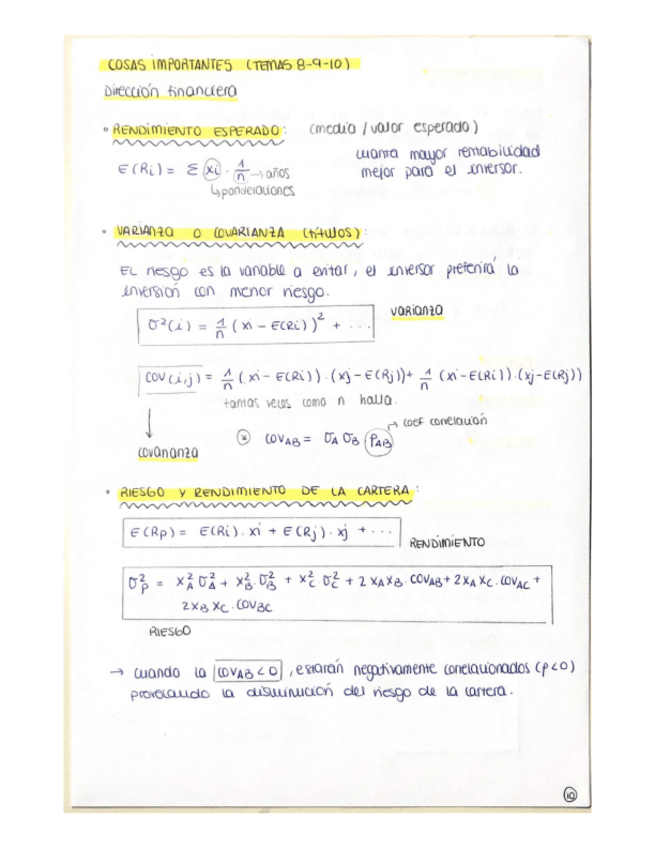 COSAS IMPORTANTES (TEMAS 8-9-10)
Dirección financiera
• RENDIMIENTO ESPERADO: (media / valor esperado)
E(Ri) = Σ xi · 1/n → años
↳ ponderaciones
cuanta mayor rentabilidad
mejor para el inversor.
• VARIANZA O COVARIANZA (títulos):
EL riesgo es la variable a evitar, el inversor preferirá la
inversión con menor riesgo.
σ²(i) = 1/n (xi - E(Ri))² + ...
varianza
COV(i,j) = 1/n (xi - E(Ri)) · (xj - E(Rj)) + 1/n (xi - E(Ri)) · (xj - E(Rj))
tantas veces como n halla.
↓
covarianza
* COVAB = σA σB ρAB → coef correlación
• RIESGO Y RENDIMIENTO DE LA CARTERA:
E(Rp) = E(Ri) · xi + E(Rj) · xj + ...
RENDIMIENTO
σ²P = X²A σ²A + X²B · σ²B + X²C σ²C + 2 XA XB · COVAB + 2 XA XC · COVAC +
2 XB XC · COVBC
RIESGO
→ cuando la COVAB < 0, estarán negativamente correlacionados (ρ<0)
provocando la disminución del riesgo de la cartera.
10